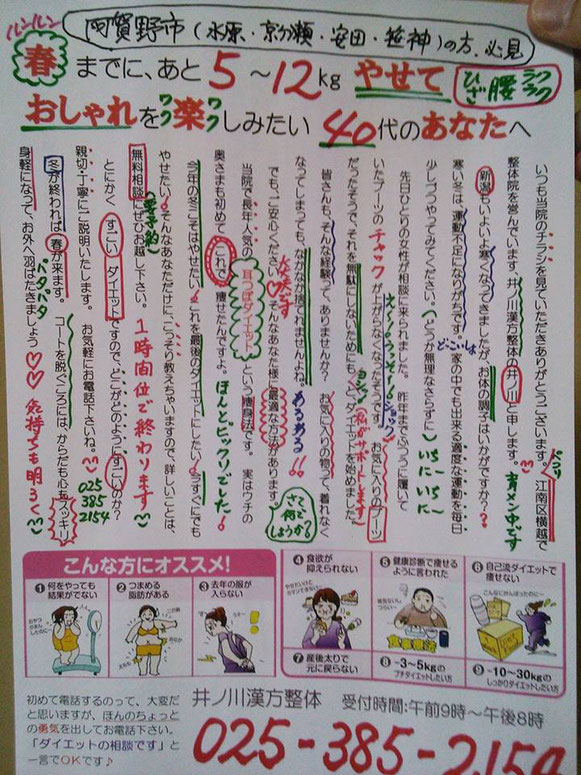 ルンルン
阿賀野市(水原・京ヶ瀬・安田・笹神)の方、必見
春までに、あと5〜12kgやせて
ひざ腰ラクラク
おしゃれを楽しみたい40代のあなたへ
ワクワク
いつも当院のチラシを見ていただきありがとうございます。江南区横越で
ペコリ
整体院を営んでいます。井ノ川漢方整体の井ノ川と申します。
育メン中です
新潟もいよいよ寒くなってきましたが、お体の調子はいかがですか?
寒い冬は、運動不足になりがちです。家の中でも出来る適度な運動を毎日
どこいしょ
少しづつやってみてください。(どうか無理なさらずに)
いちに いちに〜
先日ひとりの女性が相談に来られました。昨年までふつうに履いて
いたブーツのチャックが上がらなくなったそうです。お気に入りのブーツ
だったそうで、それを無駄にしないためにも、とダイエットを始めました。
(私がサポートします)
皆さんも、そんな経験って、ありませんか?お気に入りの物って、着れなく
なってしまっても、なかなか捨てれませんよね。
あるある!!
でも、ご安心ください。そんなあなた様に最適な方法があります。
大丈夫です
さて何でしょうか?
当院で長年人気の耳つぼダイエットという痩身法です。実はウチの
奥さまも初めてこれで痩せたんですよ。
ほんとビックリでした!
今年の冬こそはやせたい!これを最後のダイエットにしたい!今すぐにでも
やせたい!そんなあなただけに、こっそり教えちゃいますので、詳しいことは、
無料相談にぜひお越し下さい。
(要予約)
1時間位で終わります
とにかくすごいダイエットですので、どこがどのようにすごいのか?
親切・丁寧にご説明いたします。お気軽にお電話下さいね。
025
385
2154
冬が終われば春が来ます。コートを脱ぐころには、からだも心もスッキリ
パタパタ
身軽になって、お外へ羽ばたきましょう♡♡
気持ちも明るく
こんな方にオススメ!
1 何をやっても結果がでない
2 つまめる脂肪がある
3 去年の服が入らない
4 食欲が抑えられない
5 健康診断で痩せるように言われた
6 自己流ダイエットで痩せない
7 産後太りで元に戻らない
8 -3〜5kgのプチダイエットしたい方
9 -10〜30kgのしっかりダイエットしたい方
初めて電話するのって、大変だ
と思いますが、ほんのちょっと
の勇気を出してお電話下さい。
「ダイエットの相談です」と
一言でOKです♪
井ノ川漢方整体 受付時間:午前9時〜午後8時
025-385-2154